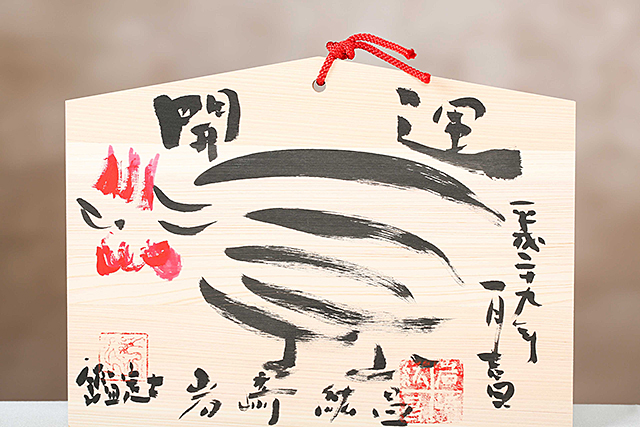 開運
平成二十九年
一月吉日
鑑定士 岩崎紘昌